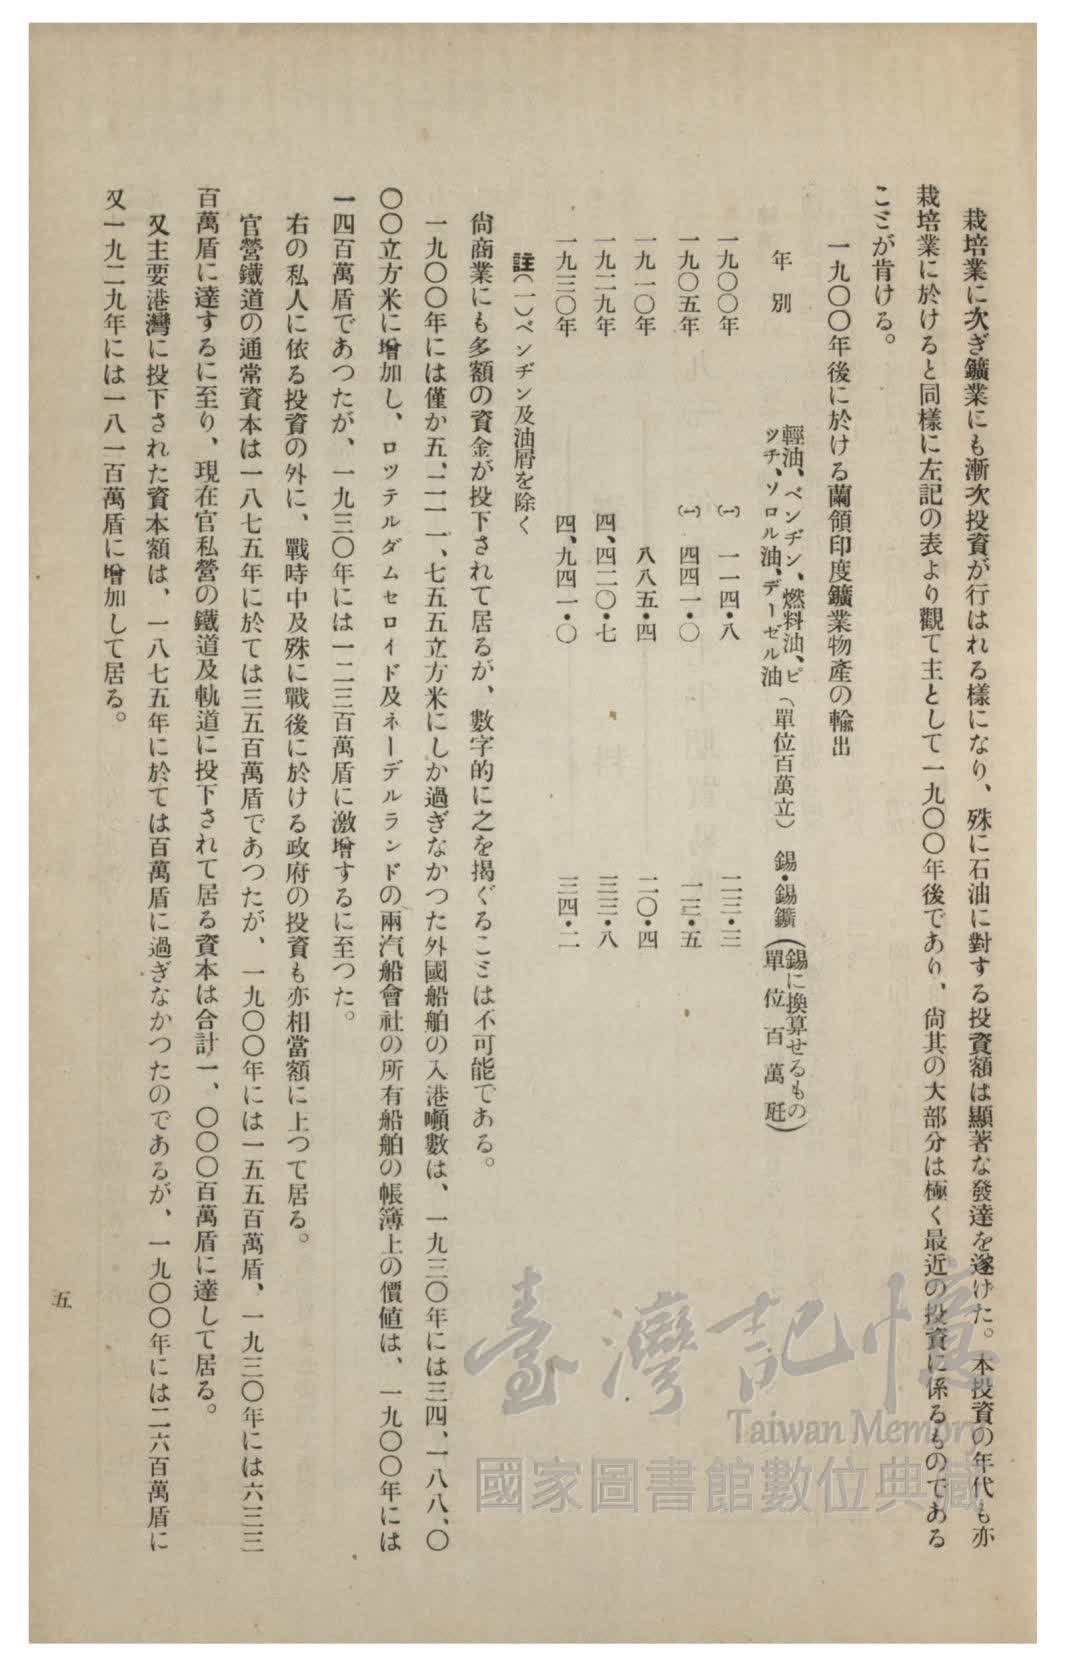 栽培業に次ぎ鑛業にも漸次投資が行はれる樣になり、殊に石油に對する投資額は顯著な發達を遂げた。本投資の年代も亦
栽培業に於けると同樣に左記の表より觀て主として一九〇〇年後であり、尙其の大部分は極く最近の投資に係るものである
こヾが肯ける。
一九〇〇年後に於ける蘭領印度鑛業物產の輸出
年別 輕油、ベンヂン、燃料油、ピツチ、ソロル油、デーゼル油(單位百萬立) 錫・錫鑛(錫に換算せるもの單位百萬瓩)
一九〇〇年 (一) 一一四・八 二三・三
一九〇五年 (一) 四四一・〇 一三・五
一九一〇年 八八五・四 二〇・四
一九二九年 四、四二〇・七 三三・八
一九三〇年 四、九四一・〇 三四・二
註(一)ベンヂン及油屑を除く
尙商業にも多額の資金が投下されて居るが、數字的に之を揭ぐるこヾは不可能である。
一九〇〇年には僅か五、二一一、七五五立方米にしか過ぎなかつた外國船舶の入港噸數は、一九三〇年には三四、一八八、〇
〇〇立方米に增加し、ロツテルダムセロイド及ネーデルランドの兩汽船會社の所有船舶の帳簿上の價値は、一九〇〇年には
一四百萬盾であつたが、一九三〇年には一二三百萬盾に激增するに至つた。
右の私人に依る投資の外に、戰時中及殊に戰後に於ける政府の投資も亦相當額に上つて居る。
官營鐵道の通常資本は一八七五年に於ては三五百萬盾であつたが、一九〇〇年には一五五百萬盾、一九三〇年には六三三
百萬盾に達するに至り、現在官私營の鐵道及軌道に投下されて居る資本は合計一、〇〇〇百萬盾に達して居る。
又主要港灣に投下された資本額は、一八七五年に於ては百萬盾に過ぎなかつたのであるが、一九〇〇年には二六百萬盾に
又一九二九年には一八一百萬盾に增加して居る。
五
臺灣記憶
Taiwan Memory
國家圖書館數位典藏